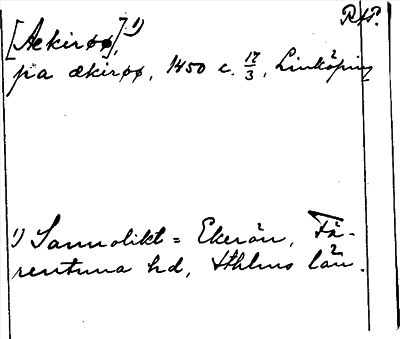 RAP.
[Aekirøø]¹⁾,
pa ækirøø, 1450 c. 17/3, Linköping
¹⁾ Sannolikt = Ekerön, Fä-
rentuna hd, Sthlms län.